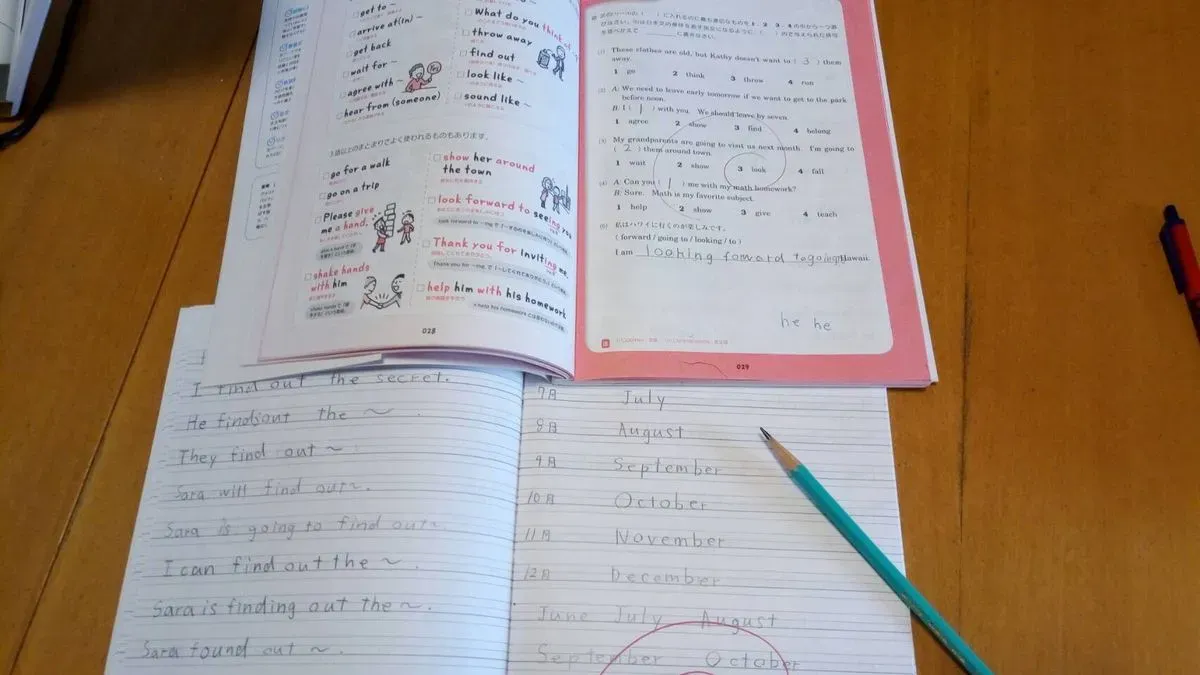 get to ~
arrive at(in) ~
get back
wait for ~
agree with ~
hear from (someone)
What do you think of
throw away
find out
look like ~
sound like ~
Yes
3語以上のまとまりでよく使われるものもあります。
go for a walk
go on a trip
Please give
me a hand.
shake hands
with him
show her around
the town
look forward to seeing you
Thank you for inviting me.
help him with his homework
028
(1) These clothes are old, but Kathy doesn't want to ( 3 ) them
away.
1 go 2 think 3 throw 4 run
(2) A: We need to leave early tomorrow if we want to get to the park
before noon.
B: I ( 1 ) with you. We should leave by seven.
1 agree 2 show 3 find 4 belong
(3) My grandparents are going to visit us next month. I'm going to
( 2 ) them around town.
1 wait 2 show 3 look 4 fall
(4) A: Can you ( 1 ) me with my math homework?
B: Sure. Math is my favorite subject.
1 help 2 show 3 give 4 teach
(5) 私はハワイに行くのが楽しみです。
( forward / going to / looking / to )
I am looking foward to going Hawaii.
he he
029
I find out the secret.
He finds out the ~ .
They find out ~
Sara will find out ~.
Sara is going to find out ~
I can find out the ~ .
Sara is finding out the ~.
Sara found out ~.
7月 July
8月 August
9月 September
10月 October
11月 November
12月 December
June July August
September October